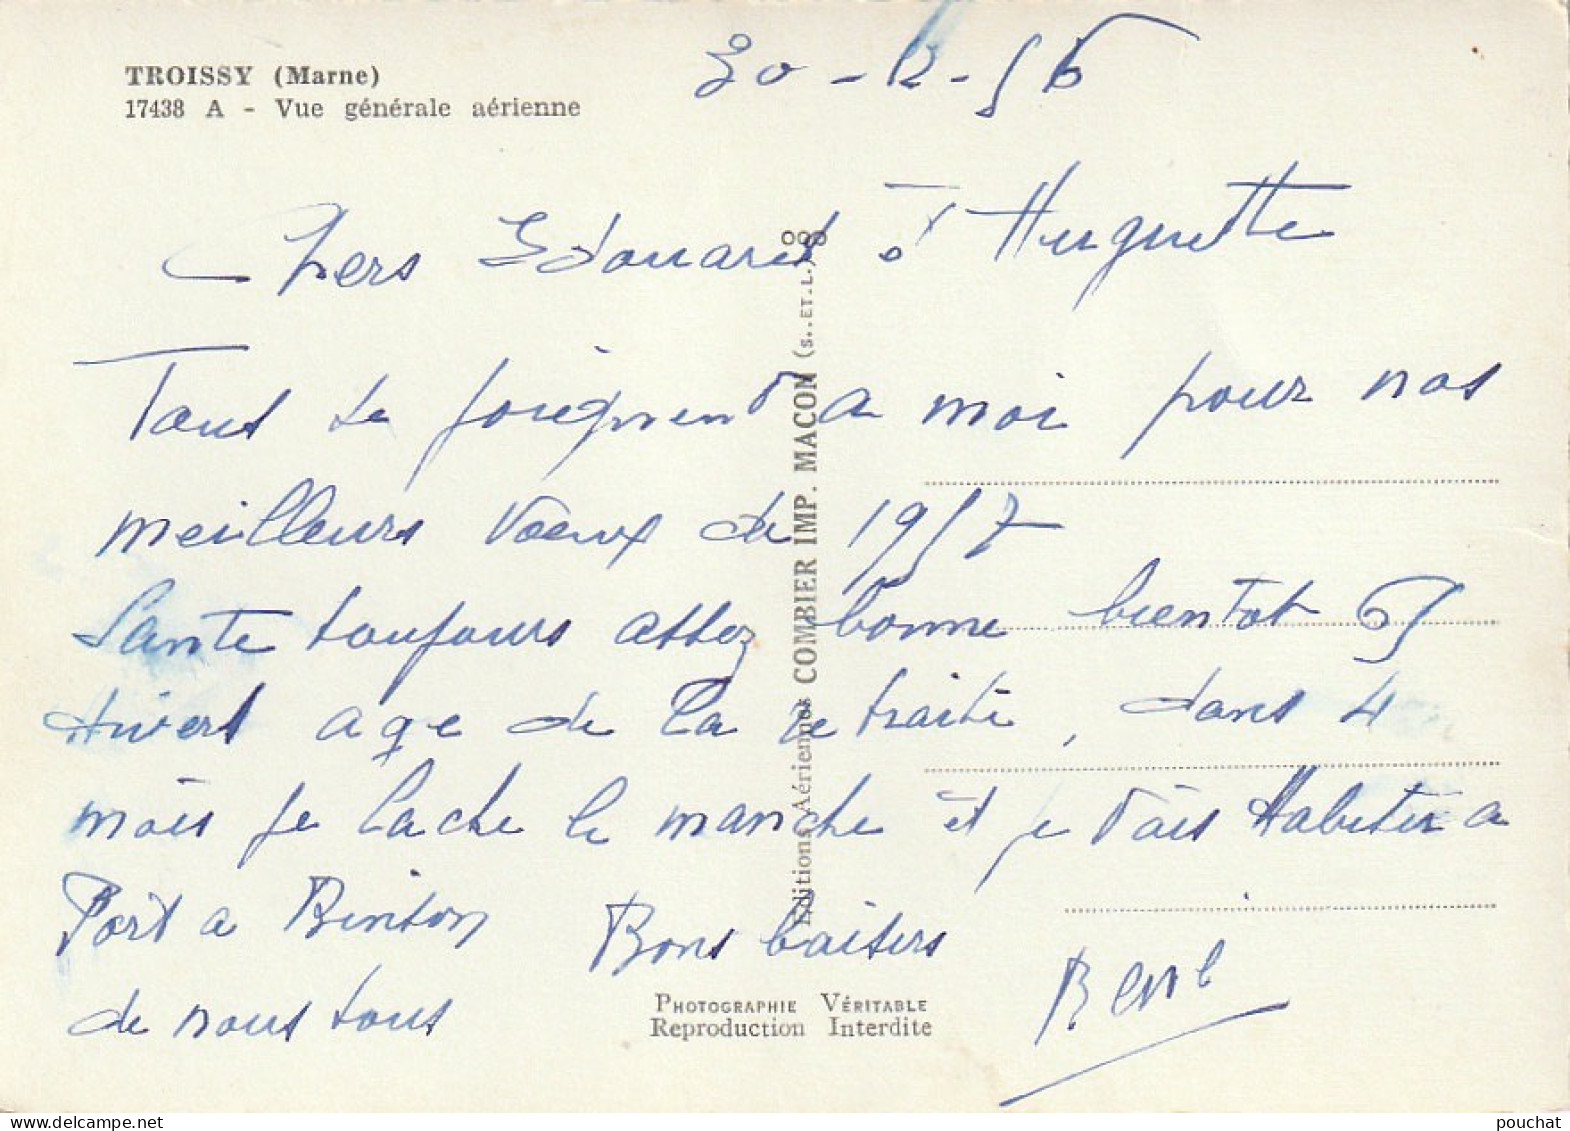 TROISSY (Marne)
17438 A - Vue générale aérienne
30-12-56
Chers Edouard et Huguette
Tous se joignent a moi pour nos
meilleurs vœux de 1957
Sante toujours assez bonne bientot 65
hivert age de la retraite, dans 4
mois je lache le manche et je vais Habiter a
Port a Binson Bons baisers
de nous tous René
Editions Aériennes COMBIER IMP. MACON (S.-ET-L.)
PHOTOGRAPHIE VÉRITABLE
Reproduction Interdite
pouchat